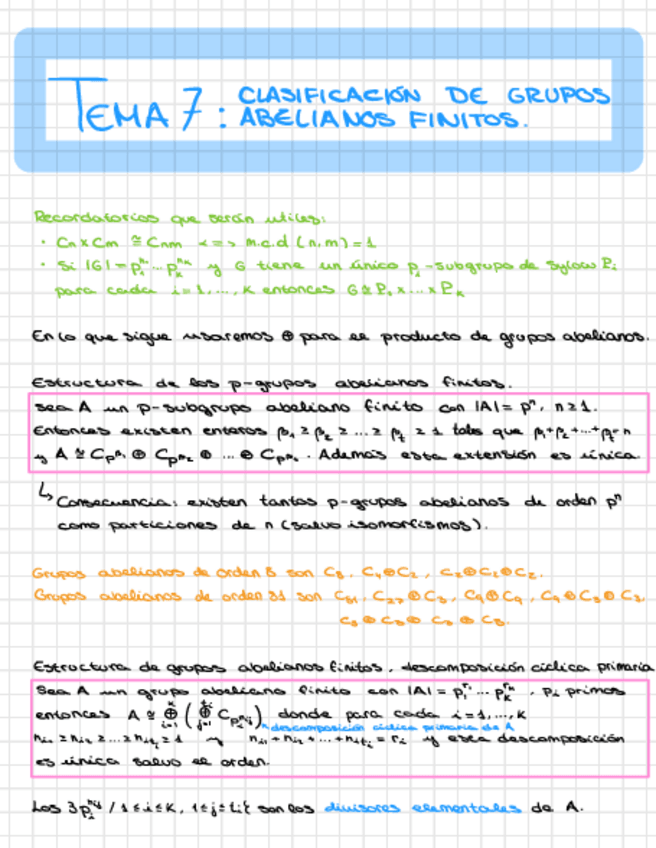 TEMA 7: CLASIFICACIÓN DE GRUPOS
ABELIANOS FINITOS.
Recordatorios que serán utiles:
· Cn x Cm ≅ Cnm <=> m.c.d (n,m)=1
· Si |G| = p₁^r₁ ... pₖ^rₖ y G tiene un único pᵢ-subgrupo de Sylow Pᵢ
para cada i=1,...,k entonces G≅P₁x...xPₖ
En lo que sigue usaremos ⊕ para el producto de grupos abelianos.
Estructura de los p-grupos abelianos finitos.
Sea A un p-subgrupo abeliano finito con |A|= pⁿ, n≥1.
Entonces existen enteros β₁ ≥ β₂ ≥ ... ≥ βₜ ≥ 1 tales que β₁+β₂+...+βₜ=n
y A ≅ C_p^β₁ ⊕ C_p^β₂ ⊕ ... ⊕ C_p^βₜ. Además esta extensión es única.
↳ Consecuencia: existen tantos p-grupos abelianos de orden pⁿ
como particiones de n (salvo isomorfismos).
Grupos abelianos de orden 8 son C₈, C₄⊕C₂, C₂⊕C₂⊕C₂.
Grupos abelianos de orden 81 son C₈₁, C₂₇⊕C₃, C₉⊕C₉, C₉⊕C₃⊕C₃,
C₃⊕C₃⊕C₃⊕C₃.
Estructura de grupos abelianos finitos, descomposición cíclica primaria
Sea A un grupo abeliano finito con |A| = p₁^r₁ ... pₖ^rₖ, pᵢ primos
entonces A ≅ ⊕ᵢ₌₁ᵏ (⊕ⱼ₌₁^tᵢ C_pᵢ^nᵢⱼ) donde para cada i=1,...,k
descomposición cíclica primaria de A
nᵢ₁ ≥ nᵢ₂ ≥ ... ≥ nᵢₜᵢ ≥ 1 y nᵢ₁ + nᵢ₂ + ... + nᵢₜᵢ = rᵢ y esta descomposición
es única salvo el orden.
Los {pᵢ^nᵢⱼ / 1≤i≤k, 1≤j≤tᵢ} son los divisores elementales de A.